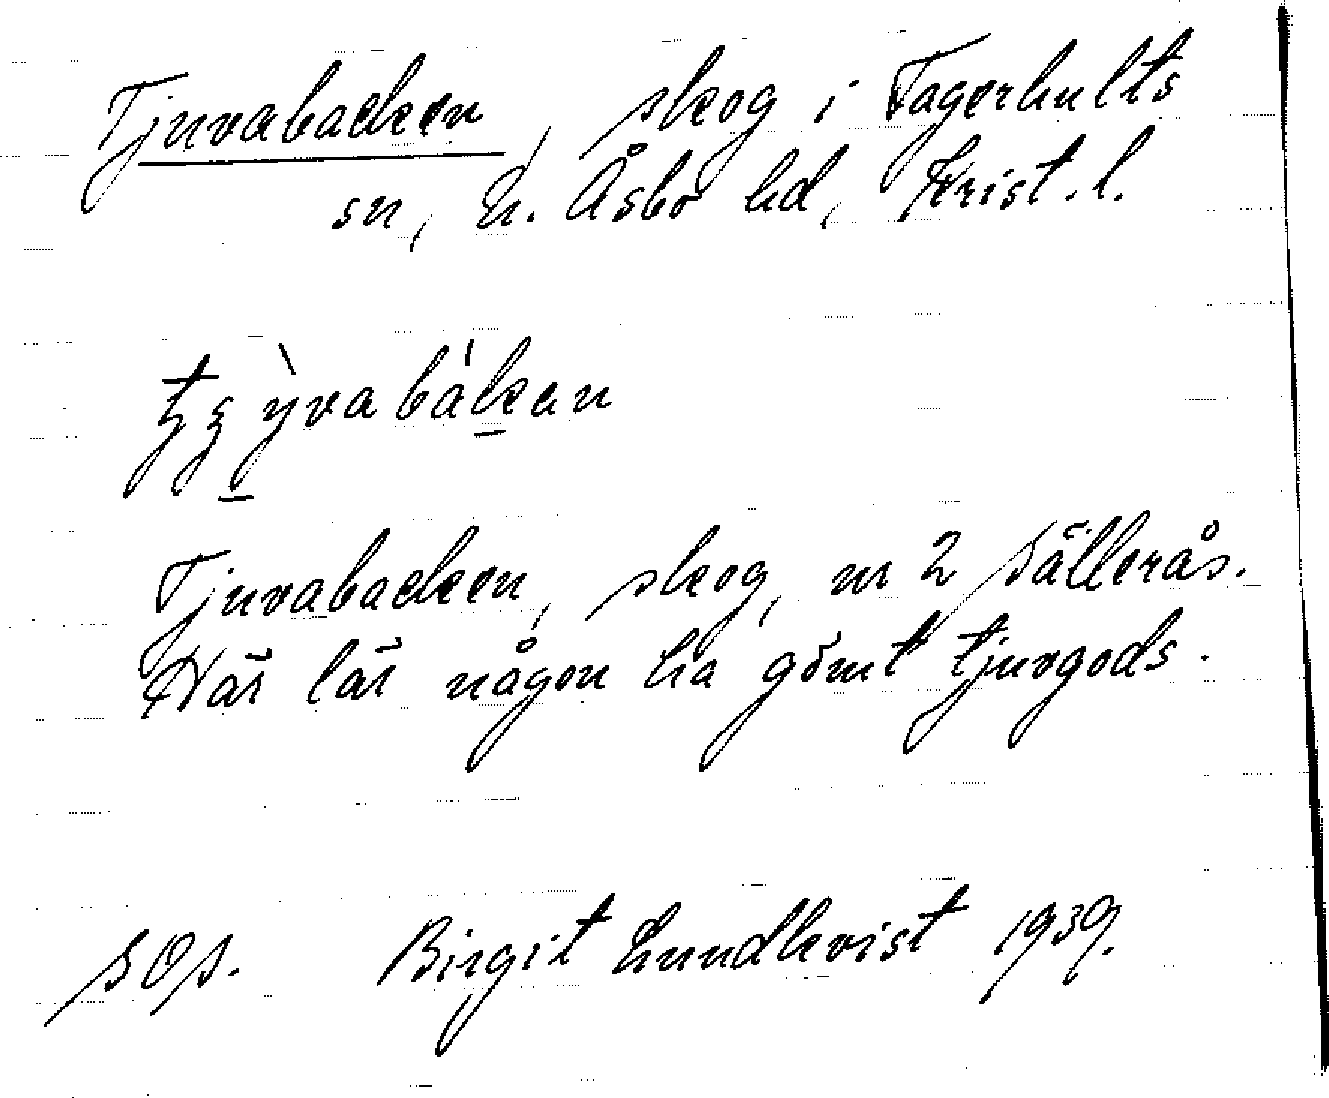 Tjuvabacken, skog i Fagerhults
sn, N. Åsbo hd, Krist. l.
Tjuvabacken, skog, nr 2 Sällerås.
Här lär någon ha gömt tjuvgods.
SOs. Birgit Lundkvist 1939.